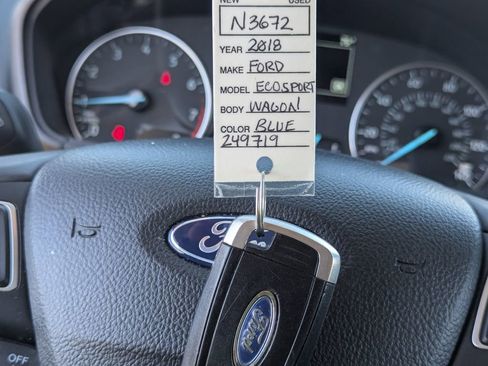 NEW USED
N3672
YEAR 2018
MAKE FORD
MODEL ECOSPORT
BODY WAGON
COLOR BLUE
249719
Ford
Ford
OFF